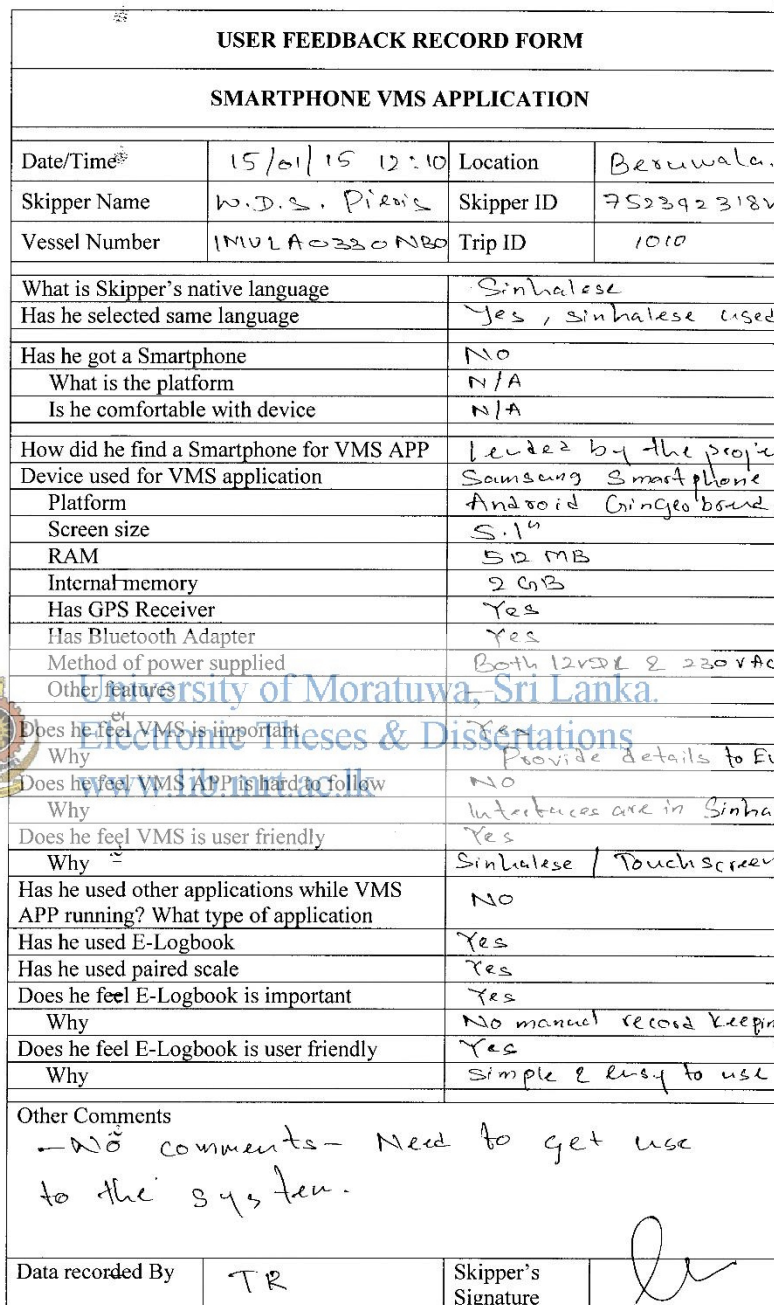 USER FEEDBACK RECORD FORM
SMARTPHONE VMS APPLICATION
Date/Time 15/01/15 12:10 Location Beruwala.
Skipper Name W.D.S. Pieris Skipper ID 752392318V
Vessel Number IMULA0330NBO Trip ID 1010
What is Skipper's native language Sinhalese
Has he selected same language Yes, sinhalese used
Has he got a Smartphone NO
What is the platform N/A
Is he comfortable with device N/A
How did he find a Smartphone for VMS APP by the proje
Device used for VMS application Samsung Smartphone
Platform Android
Screen size 5.1"
RAM 512 MB
Internal memory 2 GB
Has GPS Receiver Yes
Has Bluetooth Adapter Yes
Method of power supplied Both 12VDC & 230VAC
Other features -
University of Moratuwa, Sri Lanka.
Does he feel VMS is important Yes
Electronic Theses & Dissertations
Why Provide details to EU
Does he feel VMS APP is hard to follow NO
www.lib.mrt.ac.lk
Why Interfaces are in Sinha
Does he feel VMS is user friendly Yes
Why Sinhalese / Touchscreen
Has he used other applications while VMS
APP running? What type of application NO
Has he used E-Logbook Yes
Has he used paired scale Yes
Does he feel E-Logbook is important Yes
Why No manual record keepin
Does he feel E-Logbook is user friendly Yes
Why Simple & easy to use
Other Comments
- No comments - Need to get use
to the system.
Data recorded By TR Skipper's
Signature